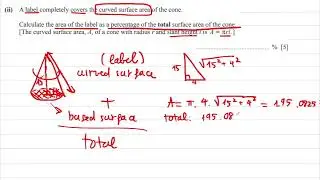 (ii) A label completely covers the curved surface area of the cone.
Calculate the area of the label as a percentage of the total surface area of the cone.
[The curved surface area, A, of a cone with radius r and slant height l is A = πrl.]
% [5]
(label)
curved surface
+
based surface
total
15
4
√15²+4²
A = π. 4. √15²+4² = 195.0825
total: 195.08